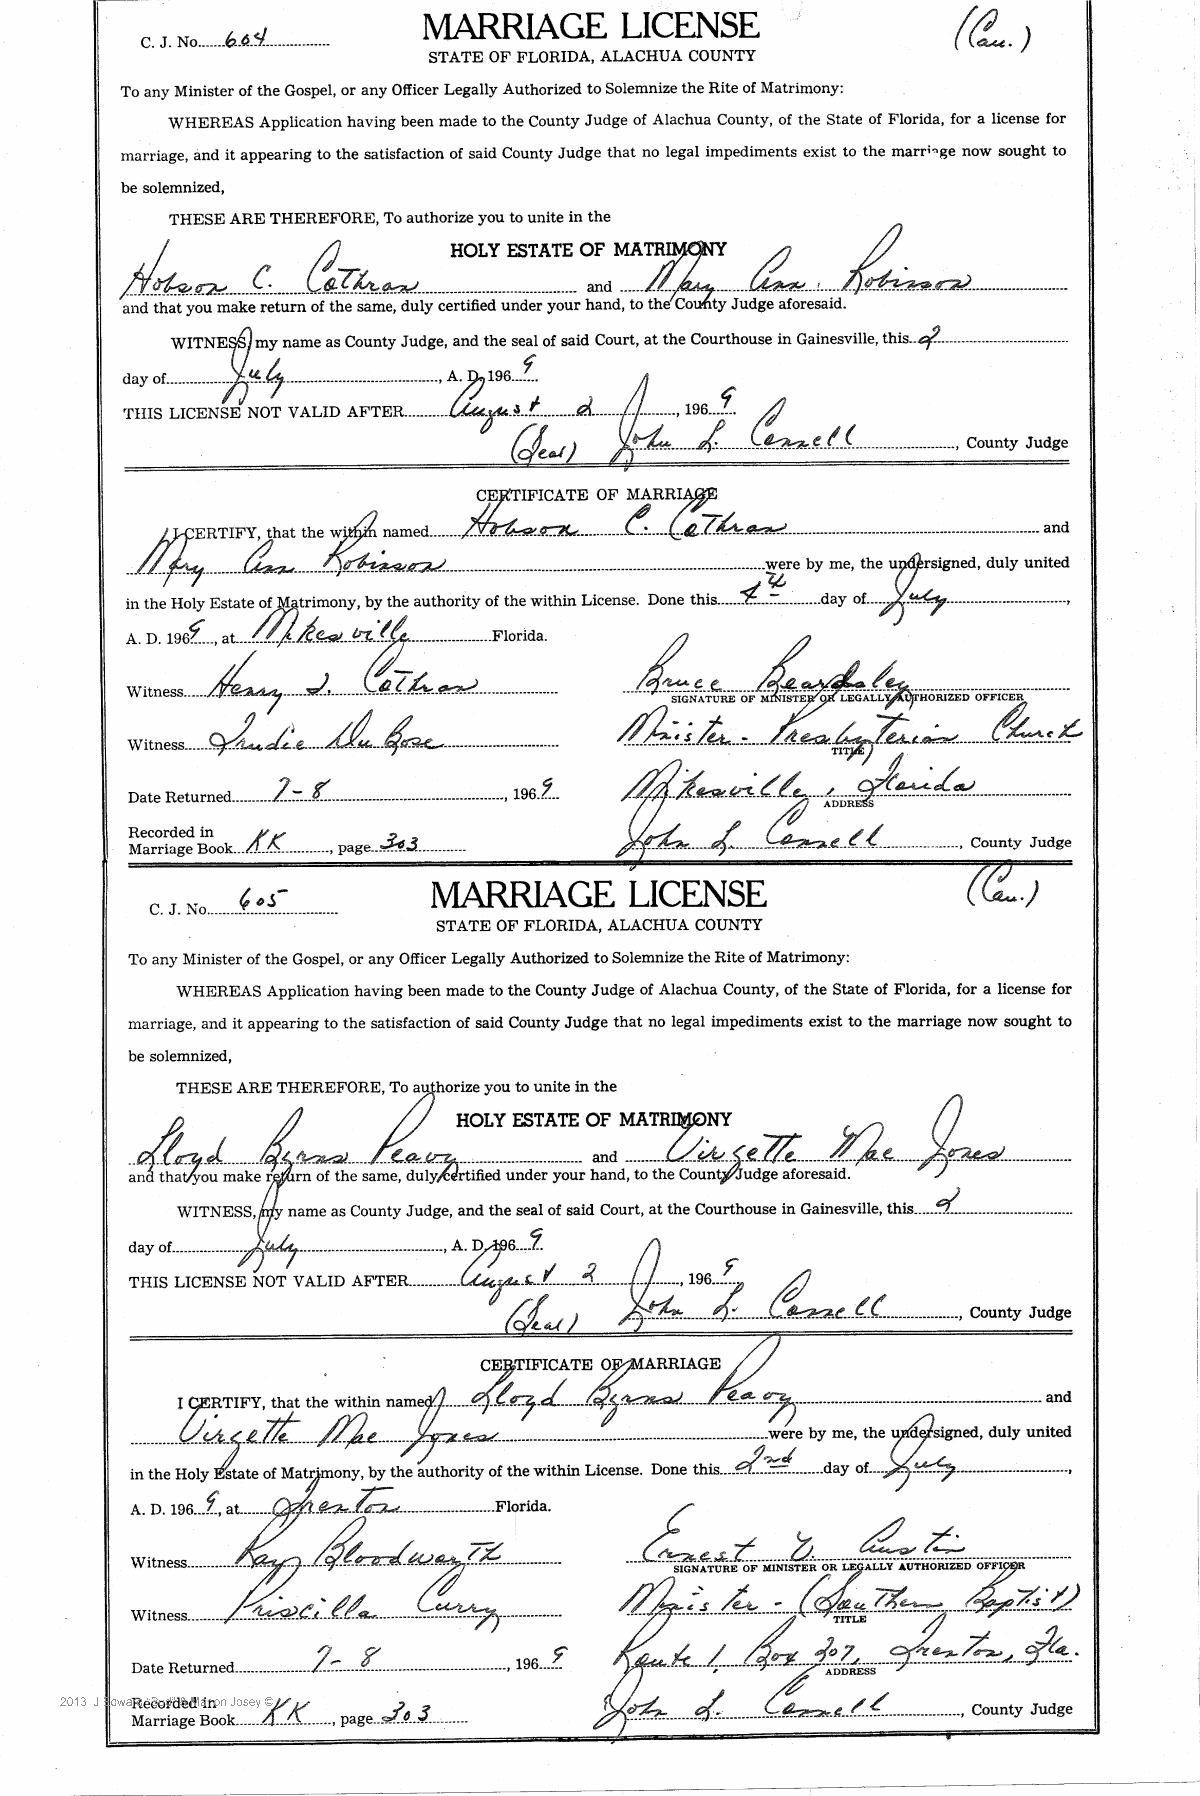 C. J. No. 604 MARRIAGE LICENSE (Cau.)
STATE OF FLORIDA, ALACHUA COUNTY
To any Minister of the Gospel, or any Officer Legally Authorized to Solemnize the Rite of Matrimony:
WHEREAS Application having been made to the County Judge of Alachua County, of the State of Florida, for a license for
marriage, and it appearing to the satisfaction of said County Judge that no legal impediments exist to the marriage now sought to
be solemnized,
THESE ARE THEREFORE, To authorize you to unite in the
HOLY ESTATE OF MATRIMONY
Hobson C. Cothran and Mary Ann Robinson
and that you make return of the same, duly certified under your hand, to the County Judge aforesaid.
WITNESS, my name as County Judge, and the seal of said Court, at the Courthouse in Gainesville, this 2
day of July, A. D. 1969
THIS LICENSE NOT VALID AFTER August 2, 1969
(Seal) John L. Connell, County Judge
CERTIFICATE OF MARRIAGE
I CERTIFY, that the within named Hobson C. Cothran and
Mary Ann Robinson were by me, the undersigned, duly united
in the Holy Estate of Matrimony, by the authority of the within License. Done this 4th day of July,
A. D. 1969, at Mikesville Florida.
Witness Henry I. Cothran Bruce Beardsley
SIGNATURE OF MINISTER OR LEGALLY AUTHORIZED OFFICER
Witness Trudie Du Bose Minister - Presbyterian Church
TITLE
Date Returned 7-8, 1969 Mikesville, Florida
ADDRESS
Recorded in
Marriage Book KK, page 303 John L. Connell, County Judge
C. J. No. 605 MARRIAGE LICENSE (Cau.)
STATE OF FLORIDA, ALACHUA COUNTY
To any Minister of the Gospel, or any Officer Legally Authorized to Solemnize the Rite of Matrimony:
WHEREAS Application having been made to the County Judge of Alachua County, of the State of Florida, for a license for
marriage, and it appearing to the satisfaction of said County Judge that no legal impediments exist to the marriage now sought to
be solemnized,
THESE ARE THEREFORE, To authorize you to unite in the
HOLY ESTATE OF MATRIMONY
Lloyd Byrns Peavy and Virgette Mae Jones
and that you make return of the same, duly certified under your hand, to the County Judge aforesaid.
WITNESS, my name as County Judge, and the seal of said Court, at the Courthouse in Gainesville, this 2
day of July, A. D. 1969
THIS LICENSE NOT VALID AFTER August 2, 1969
(Seal) John L. Connell, County Judge
CERTIFICATE OF MARRIAGE
I CERTIFY, that the within named Lloyd Byrns Peavy and
Virgette Mae Jones were by me, the undersigned, duly united
in the Holy Estate of Matrimony, by the authority of the within License. Done this 2nd day of July,
A. D. 1969, at Trenton Florida.
Witness Ray Bloodworth Ernest V. Austin
SIGNATURE OF MINISTER OR LEGALLY AUTHORIZED OFFICER
Witness Priscilla Curry Minister - (Southern Baptist)
TITLE
Date Returned 7-8, 1969 Route 1, Box 207, Trenton, Fla.
ADDRESS
Recorded in
Marriage Book KK, page 303 John L. Connell, County Judge
2013 Josey ©